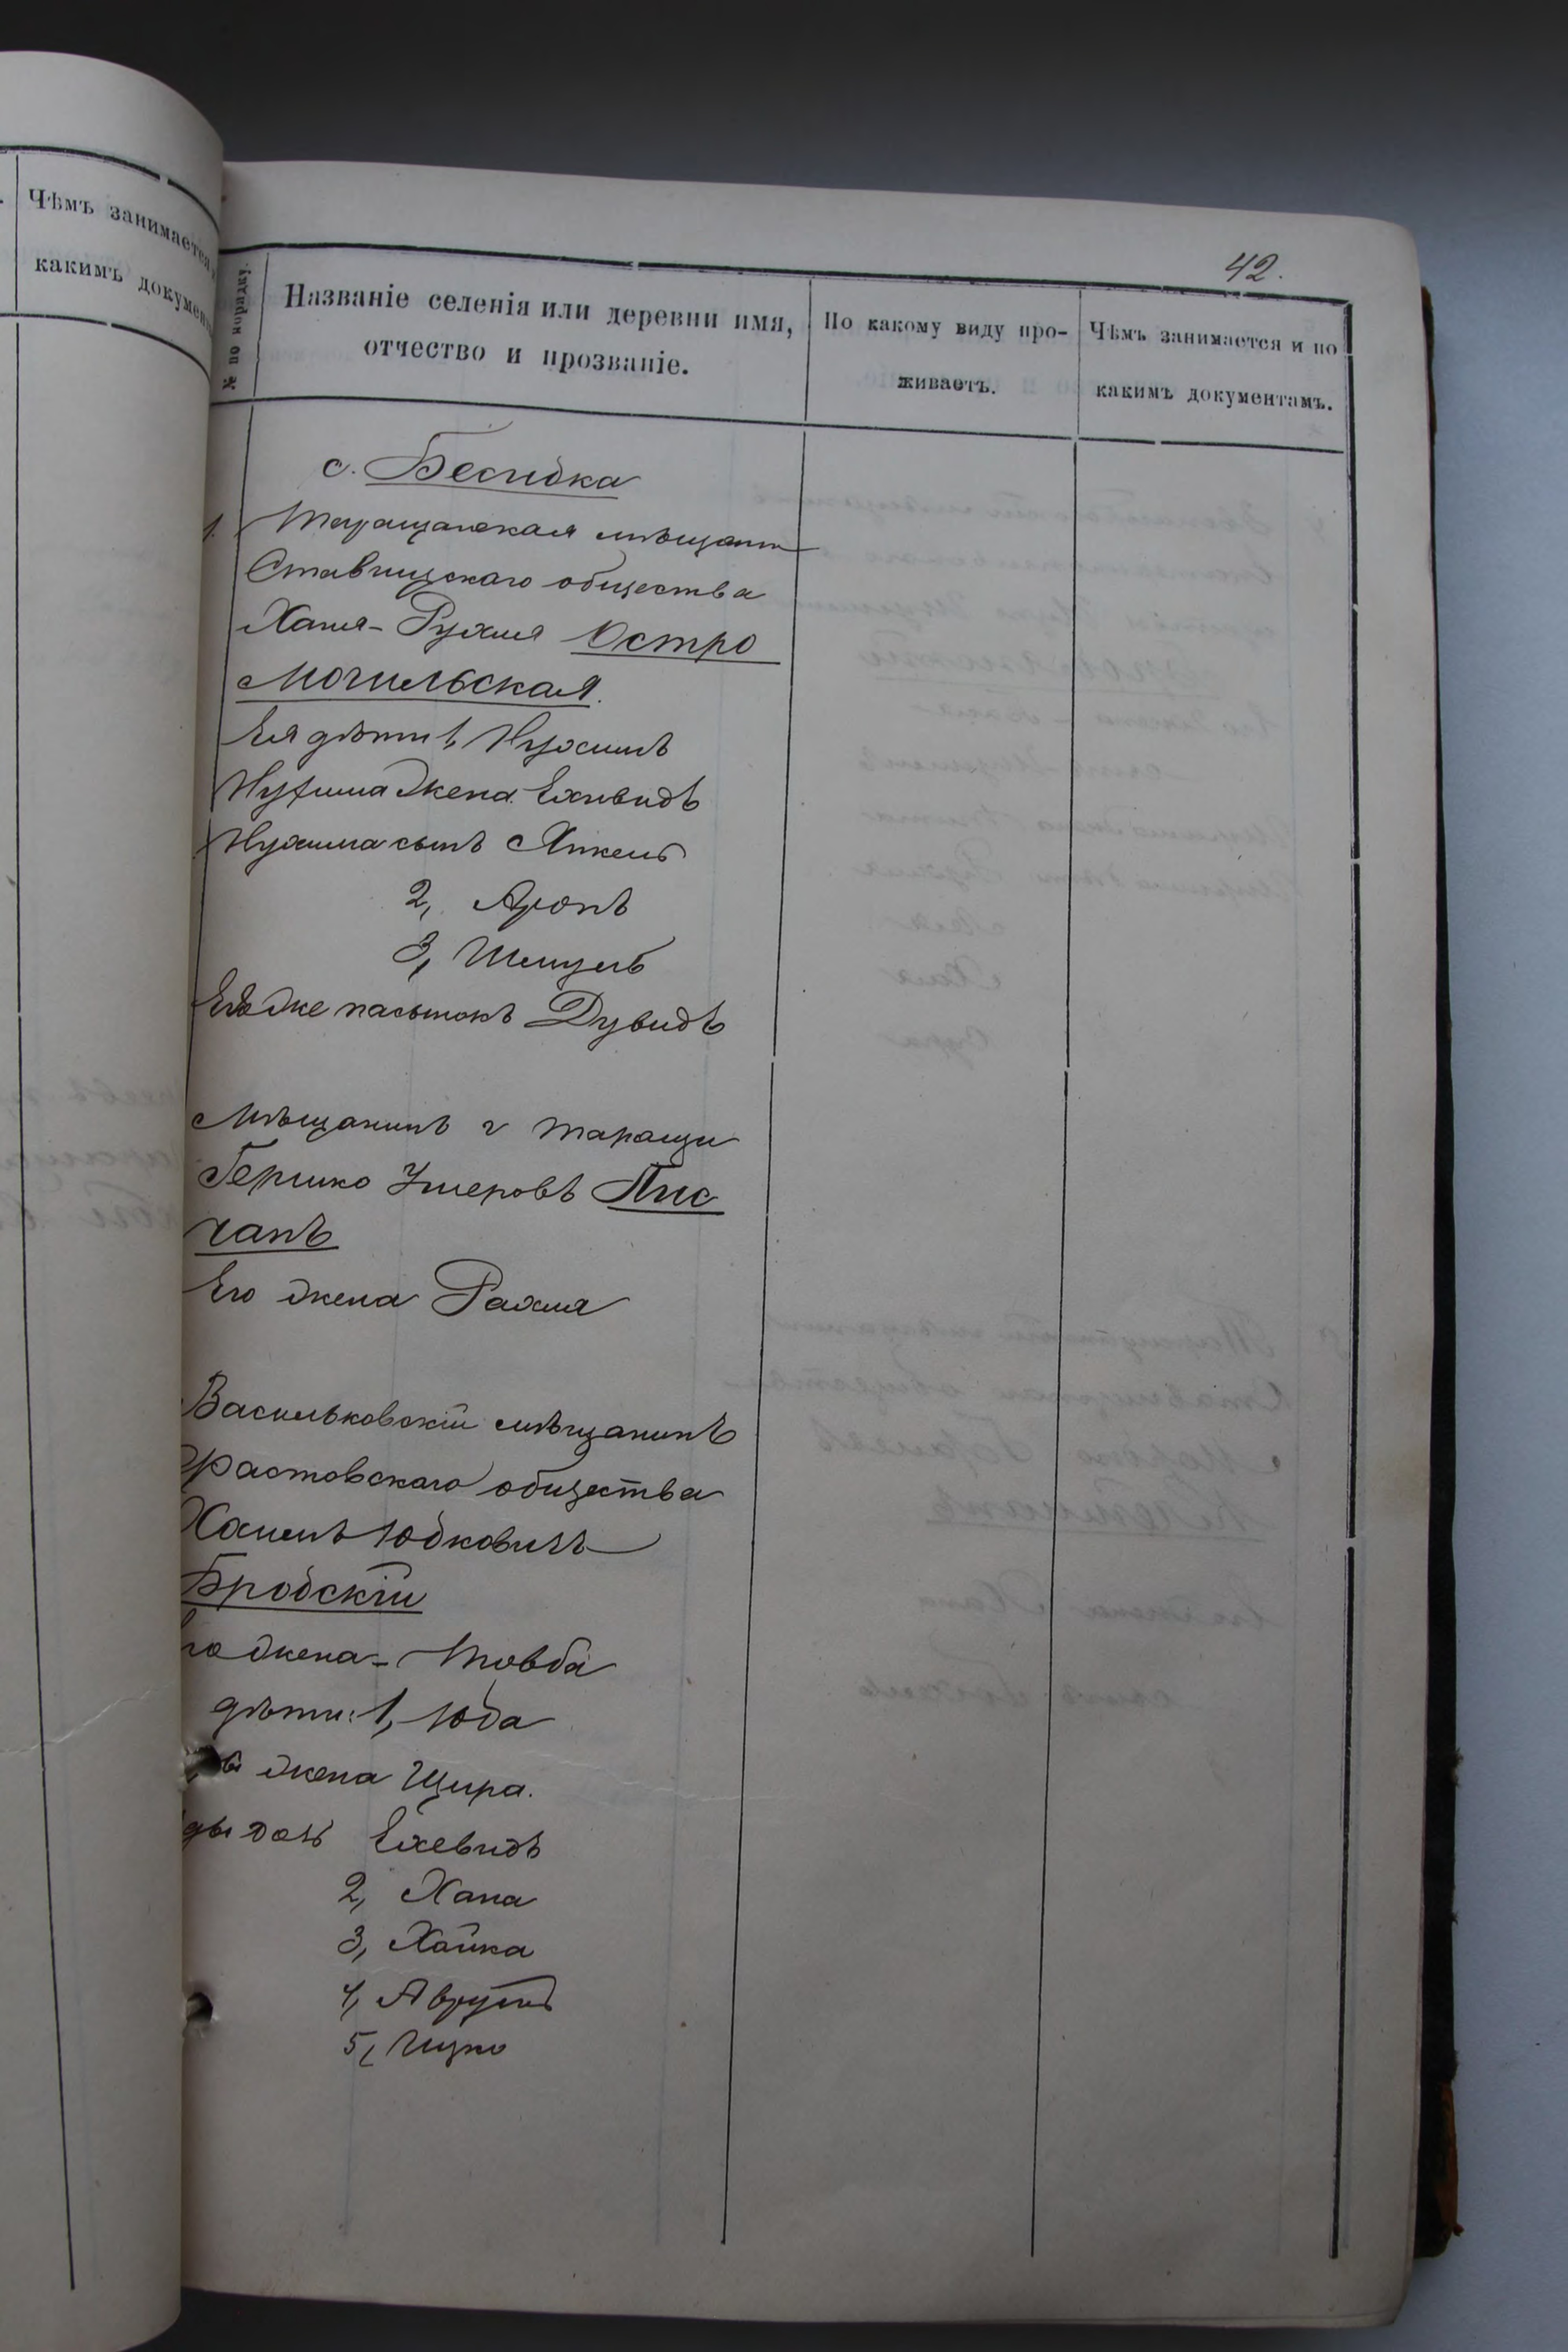 Чѣмъ занимается
какимъ докумен
42.
№ по порядку.
Названіе селенія или деревни имя,
отчество и прозваніе.
По какому виду про-
живаетъ.
Чѣмъ занимается и по
какимъ документамъ.
с. Бесидка
1. Таращанская мѣщанк
Ставищскаго общества
Ханя-Рухля Остро
могильская.
Ея дѣти 1, Нухимъ
Нухима жена Ехивидъ
Нухима сынъ Янкель
2, Аронъ
3, Шмуль
же пасынокъ Дувидъ
Мѣщанинъ г Таращи
Гершко Умеровъ Пис
чанъ
Его жена Рахля
Васильковскій мѣщанинъ
Фастовскаго общества
Юдковичъ
Бродскій
го жена - Товба
дѣти: 1, Юда
жена Цира.
ды дочь Ехевидъ
2, Хана
3, Хайка
4, Аврумъ
5, Ицко